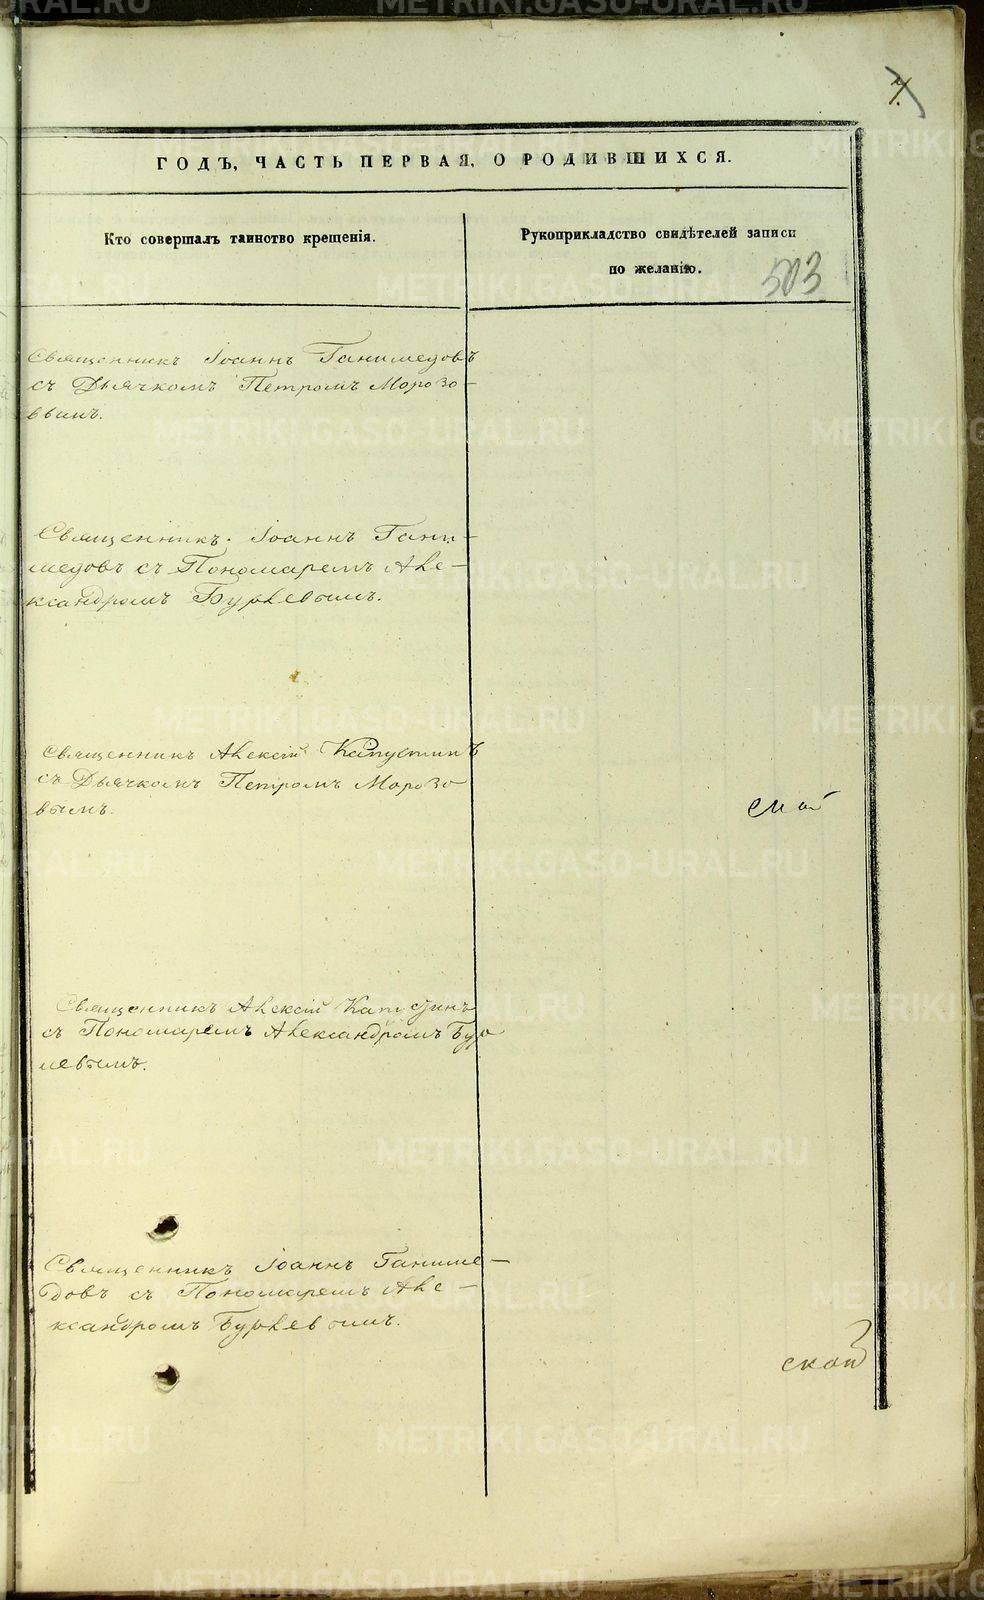 7
ГОДЪ, ЧАСТЬ ПЕРВАЯ, О РОДИВШИХСЯ.
Кто совершалъ таинство крещенія.
Рукоприкладство свидѣтелей записи
по желанію.
503
Священникъ Іоаннъ Ганимедовъ
съ Дьячкомъ Петромъ Морозо-
вымъ.
Священникъ Іоаннъ Гани-
медовъ съ Пономаремъ Але-
ксандромъ Бурлевымъ.
Священникъ Алексій Капустинъ
съ Дьячкомъ Петромъ Морозо-
вымъ.
ской
Священникъ Алексій Капустинъ
съ Пономаремъ Александромъ Бур
левымъ.
Священникъ Іоаннъ Ганиме-
довъ съ Пономаремъ Але-
ксандромъ Бурлевымъ.
ской
METRIKI.GASO-URAL.RU